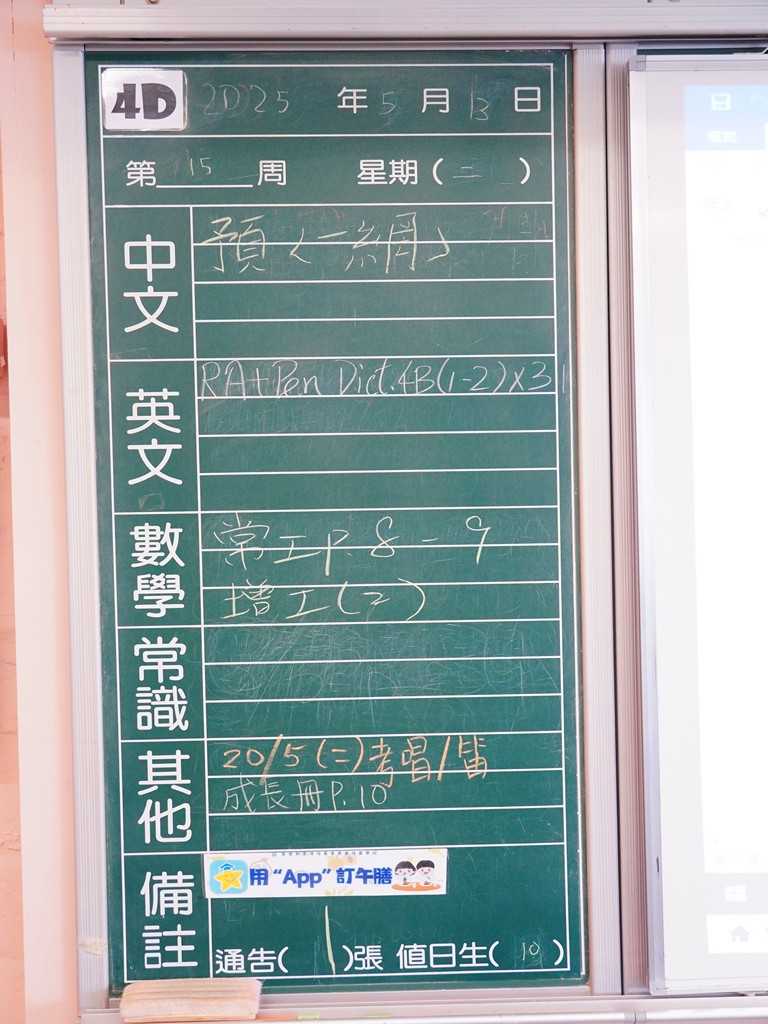 4D 2025 年 5 月 13 日
第 15 周 星期 ( 二 )
中文
預〈一網〉
英文
RA+Pen Dict.4B(1-2)x3
數學
常工P. 8 - 9
增工(二)
常識
其他
20/5 (二)考唱/笛
成長冊P.10
備註
用 “App” 訂午膳
通告( 1 )張 值日生( 10 )